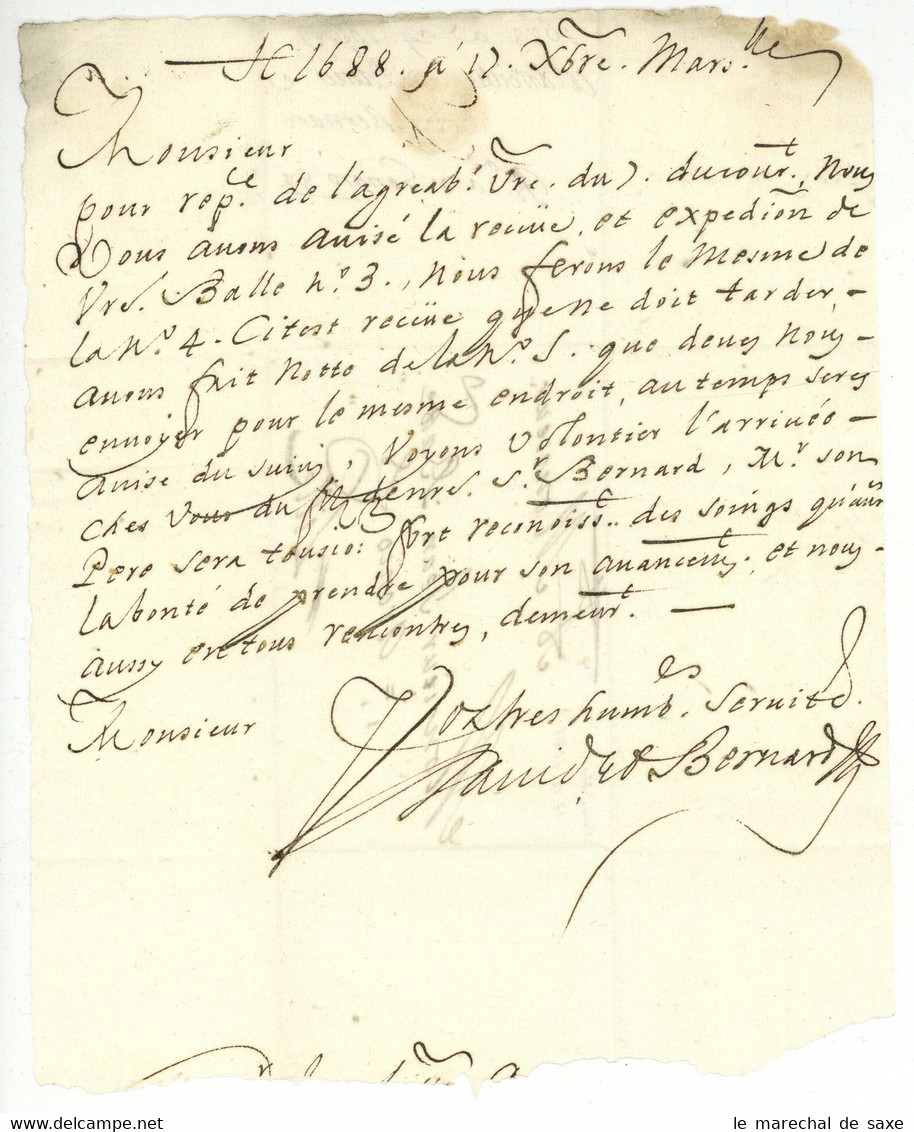 1688. a 17. Xbre. Mars.lle
Monsieur
pour rep.e de l'agreab.e vre. du 7. ducour.t, Nous
Vous avons avisé la reçüe, et expedion de
Vre. Balle N.o 3., Nous ferons le mesme de
la N.o 4. Citost reçüe qu'elle doit tarder,
avons fait Notte de la N.o 5. que deves Nous
envoyer pour le mesme endroit, au temps seres
avisé du suivy, Voyons Volontier l'arrivée
ches Vous du S.r Bernard, M.r son
Pere sera tousio: fort reconoiss.t des soings qu'aves
la bonté de prendre pour son avancem.t. et nous
aussy en tous rencontres, demeur.t.
Monsieur
Voz tres humb.es Servite.
David et Bernard
le marechal de saxe